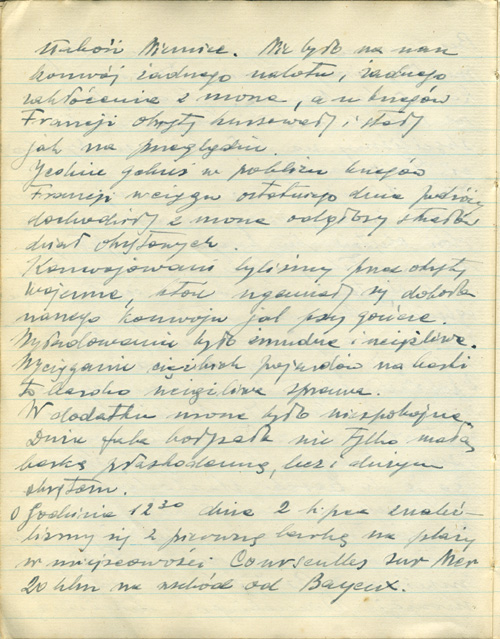 słabości Niemiec. Nie było na nasz
konwój żadnego nalotu, żadnego
zakłócenia z morza, a u brzegów
Francji okręty kursowały i stały
jak na przeglądzie.
Jedynie gdzieś w pobliżu brzegów
Francji w ciągu ostatniego dnia podróży
dochodziły z morza odgłosy strzałów
dział okrętowych.
Konwojowani byliśmy przez okręty
wojenne, które uganiały się dookoła
naszego konwoju jak psy gończe.
Wyładowanie było żmudne i uciążliwe.
Wyciąganie ciężkich pojazdów na barki
to bardzo uciążliwa sprawa.
W dodatku morze było niespokojne
Duża fala kołysała nie tylko małą
barką płaskodenną, lecz i dużym
okrętem.
O godzinie 12 30 dnia 2 lipca znaleź-
liśmy się z pierwszą barką na plaży
w miejscowości Courseulles sur Mer
20 klm na wschód od Bayeux.